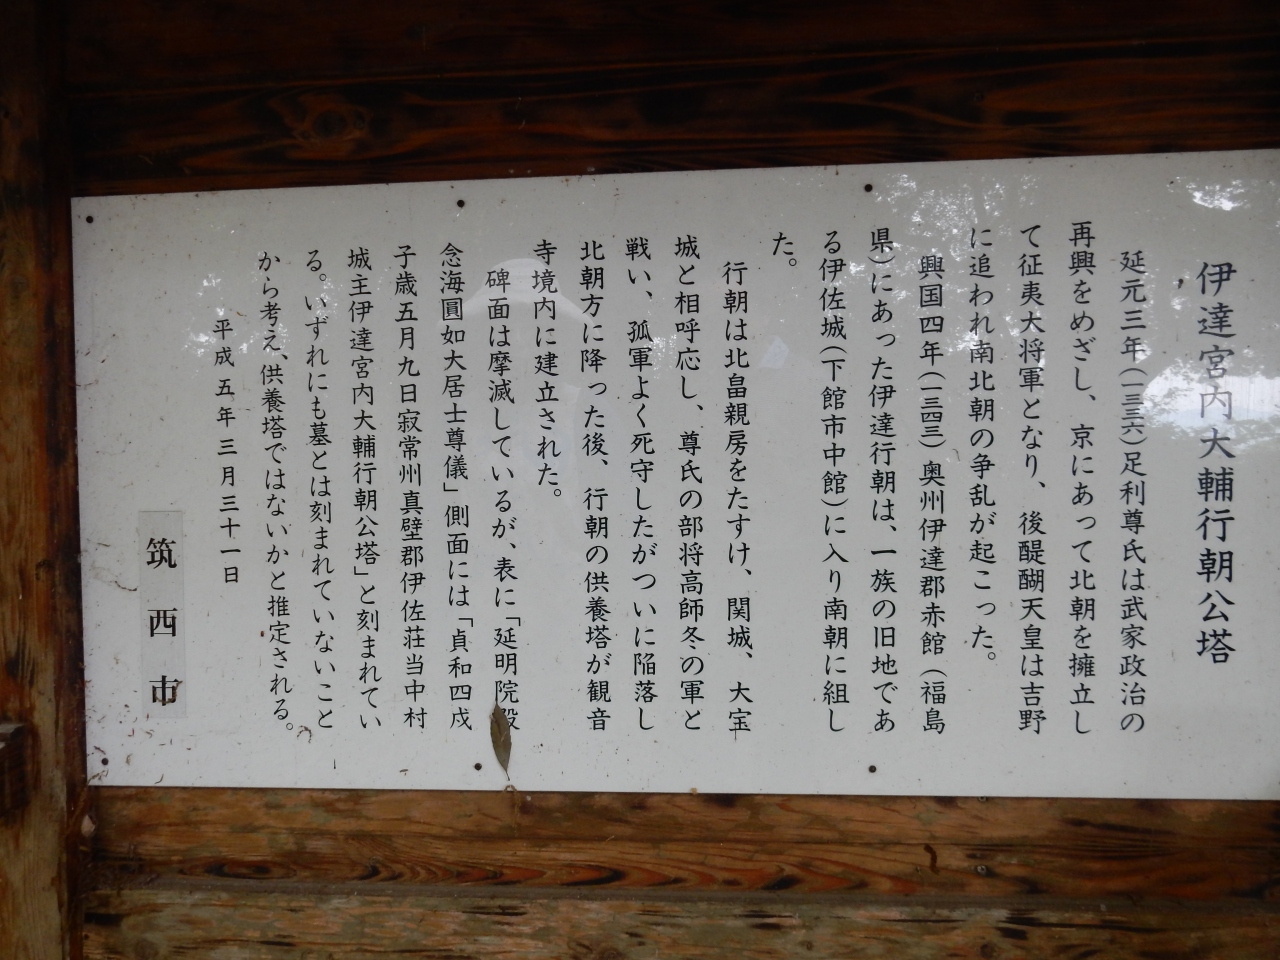 伊達宮内大輔行朝公塔
延元三年(一三三六)足利尊氏は武家政治の
再興をめざし、京にあって北朝を擁立し
て征夷大将軍となり、後醍醐天皇は吉野
に追われ南北朝の争乱が起こった。
興国四年(一三四三)奥州伊達郡赤館(福島
県)にあった伊達行朝は、一族の旧地であ
る伊佐城(下館市中館)に入り南朝に組し
た。
行朝は北畠親房をたすけ、関城、大宝
城と相呼応し、尊氏の部将高師冬の軍と
戦い、孤軍よく死守したがついに陥落し
北朝方に降った後、行朝の供養塔が観音
寺境内に建立された。
碑面は摩滅しているが、表に「延明院殿
念海圓如大居士尊儀」側面には「貞和四戌
子歳五月九日寂常州真壁郡伊佐荘当中村
城主伊達宮内大輔行朝公塔」と刻まれてい
る。いずれにも墓とは刻まれていないこと
から考え、供養塔ではないかと推定される。
平成五年三月三十一日
筑西市